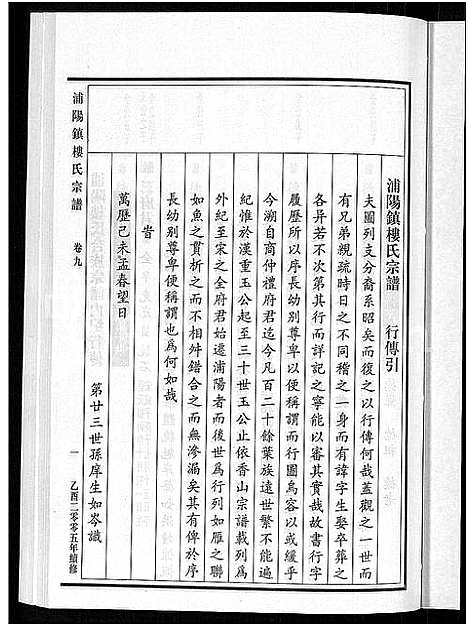 浦陽鎮樓氏宗譜 行傳引
夫圖列支分裔系昭矣而復之以行傳何哉蓋觀之一世而
有兄弟親疏時日之不同稽之一身而有諱字生娶卒葬之
各异若不次第其行而詳記之寧能以審其實哉故書行字
履歷所以序長幼別尊卑以便稱謂而行圖烏容以或緩乎
今溯自商仲禮府君迄今凡百二十餘葉族遠世繁不能遍
紀惟於漢重玉公起至三十世玉公止依香山宗譜載列爲
外紀至宋之全府君始遷浦陽者而爲行列如雁之聯
如魚之貫析之而不相舛錯合之而無滲漏矣其有俾於序
長幼別尊卑便稱謂也爲何如哉
旹
萬歷己未孟春望日
第廿三世孫庠生如岑識
浦陽鎮樓氏宗譜 卷九
一 乙酉二零零五年續修